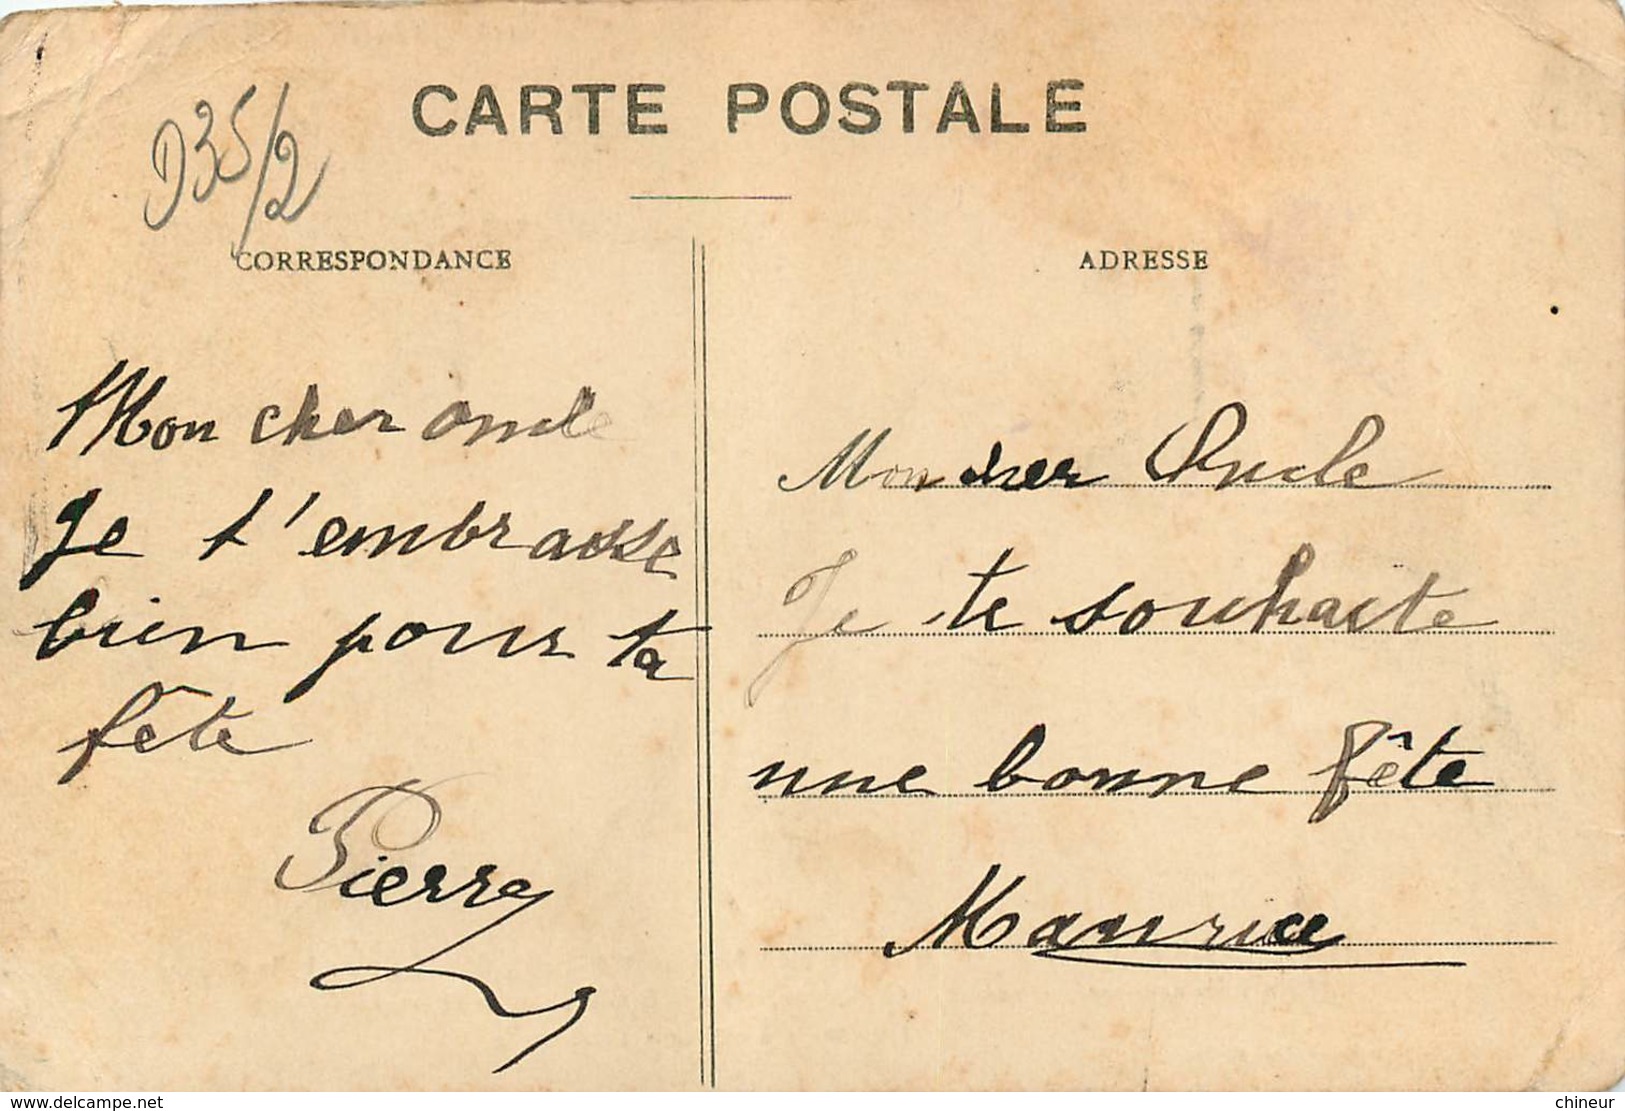 CARTE POSTALE
D35/2
CORRESPONDANCE
Mon cher oncle
Je t'embrasse
bien pour ta
fête
Pierre
ADRESSE
Mon cher Oncle
Je te souhaite
une bonne fête
Maurice
www.delcampe.net
chineur